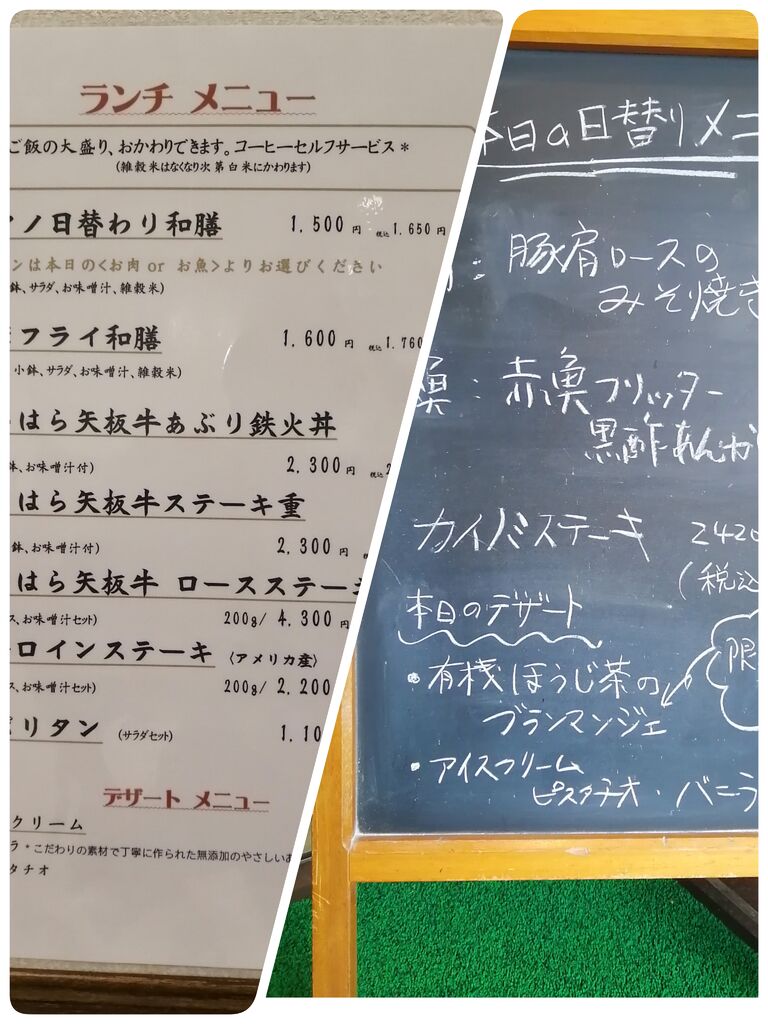 ランチ メニュー
ご飯の大盛り、おかわりできます。コーヒーセルフサービス*
(雑穀米はなくなり次第白米にかわります)
ノ日替わり和膳 1.500円 税込1.650円
ンは本日の<お肉 or お魚>よりお選びください
鉢、サラダ、お味噌汁、雑穀米)
フライ和膳 1.600円 税込1.760
小鉢、サラダ、お味噌汁、雑穀米)
はら矢板牛あぶり鉄火丼
、お味噌汁付) 2.300円 税込
はら矢板牛ステーキ重
鉢、お味噌汁付) 2.300円
はら矢板牛 ロースステー
ス、お味噌汁セット) 200g/ 4.300円
ロインステーキ 〈アメリカ産〉
ス、お味噌汁セット) 200g/ 2.200
リタン (サラダセット) 1.10
デザート メニュー
クリーム
ラ *こだわりの素材で丁寧に作られた無添加のやさしい
タチオ
本日の日替りメニ
:豚肩ロースの
みそ焼き
魚:赤魚フリッター
黒酢あんか
カイノミステーキ 2420
(税込
本日のデザート
・有機ほうじ茶の
ブランマンジェ
限
・アイスクリーム
ピスタチオ・バニラ